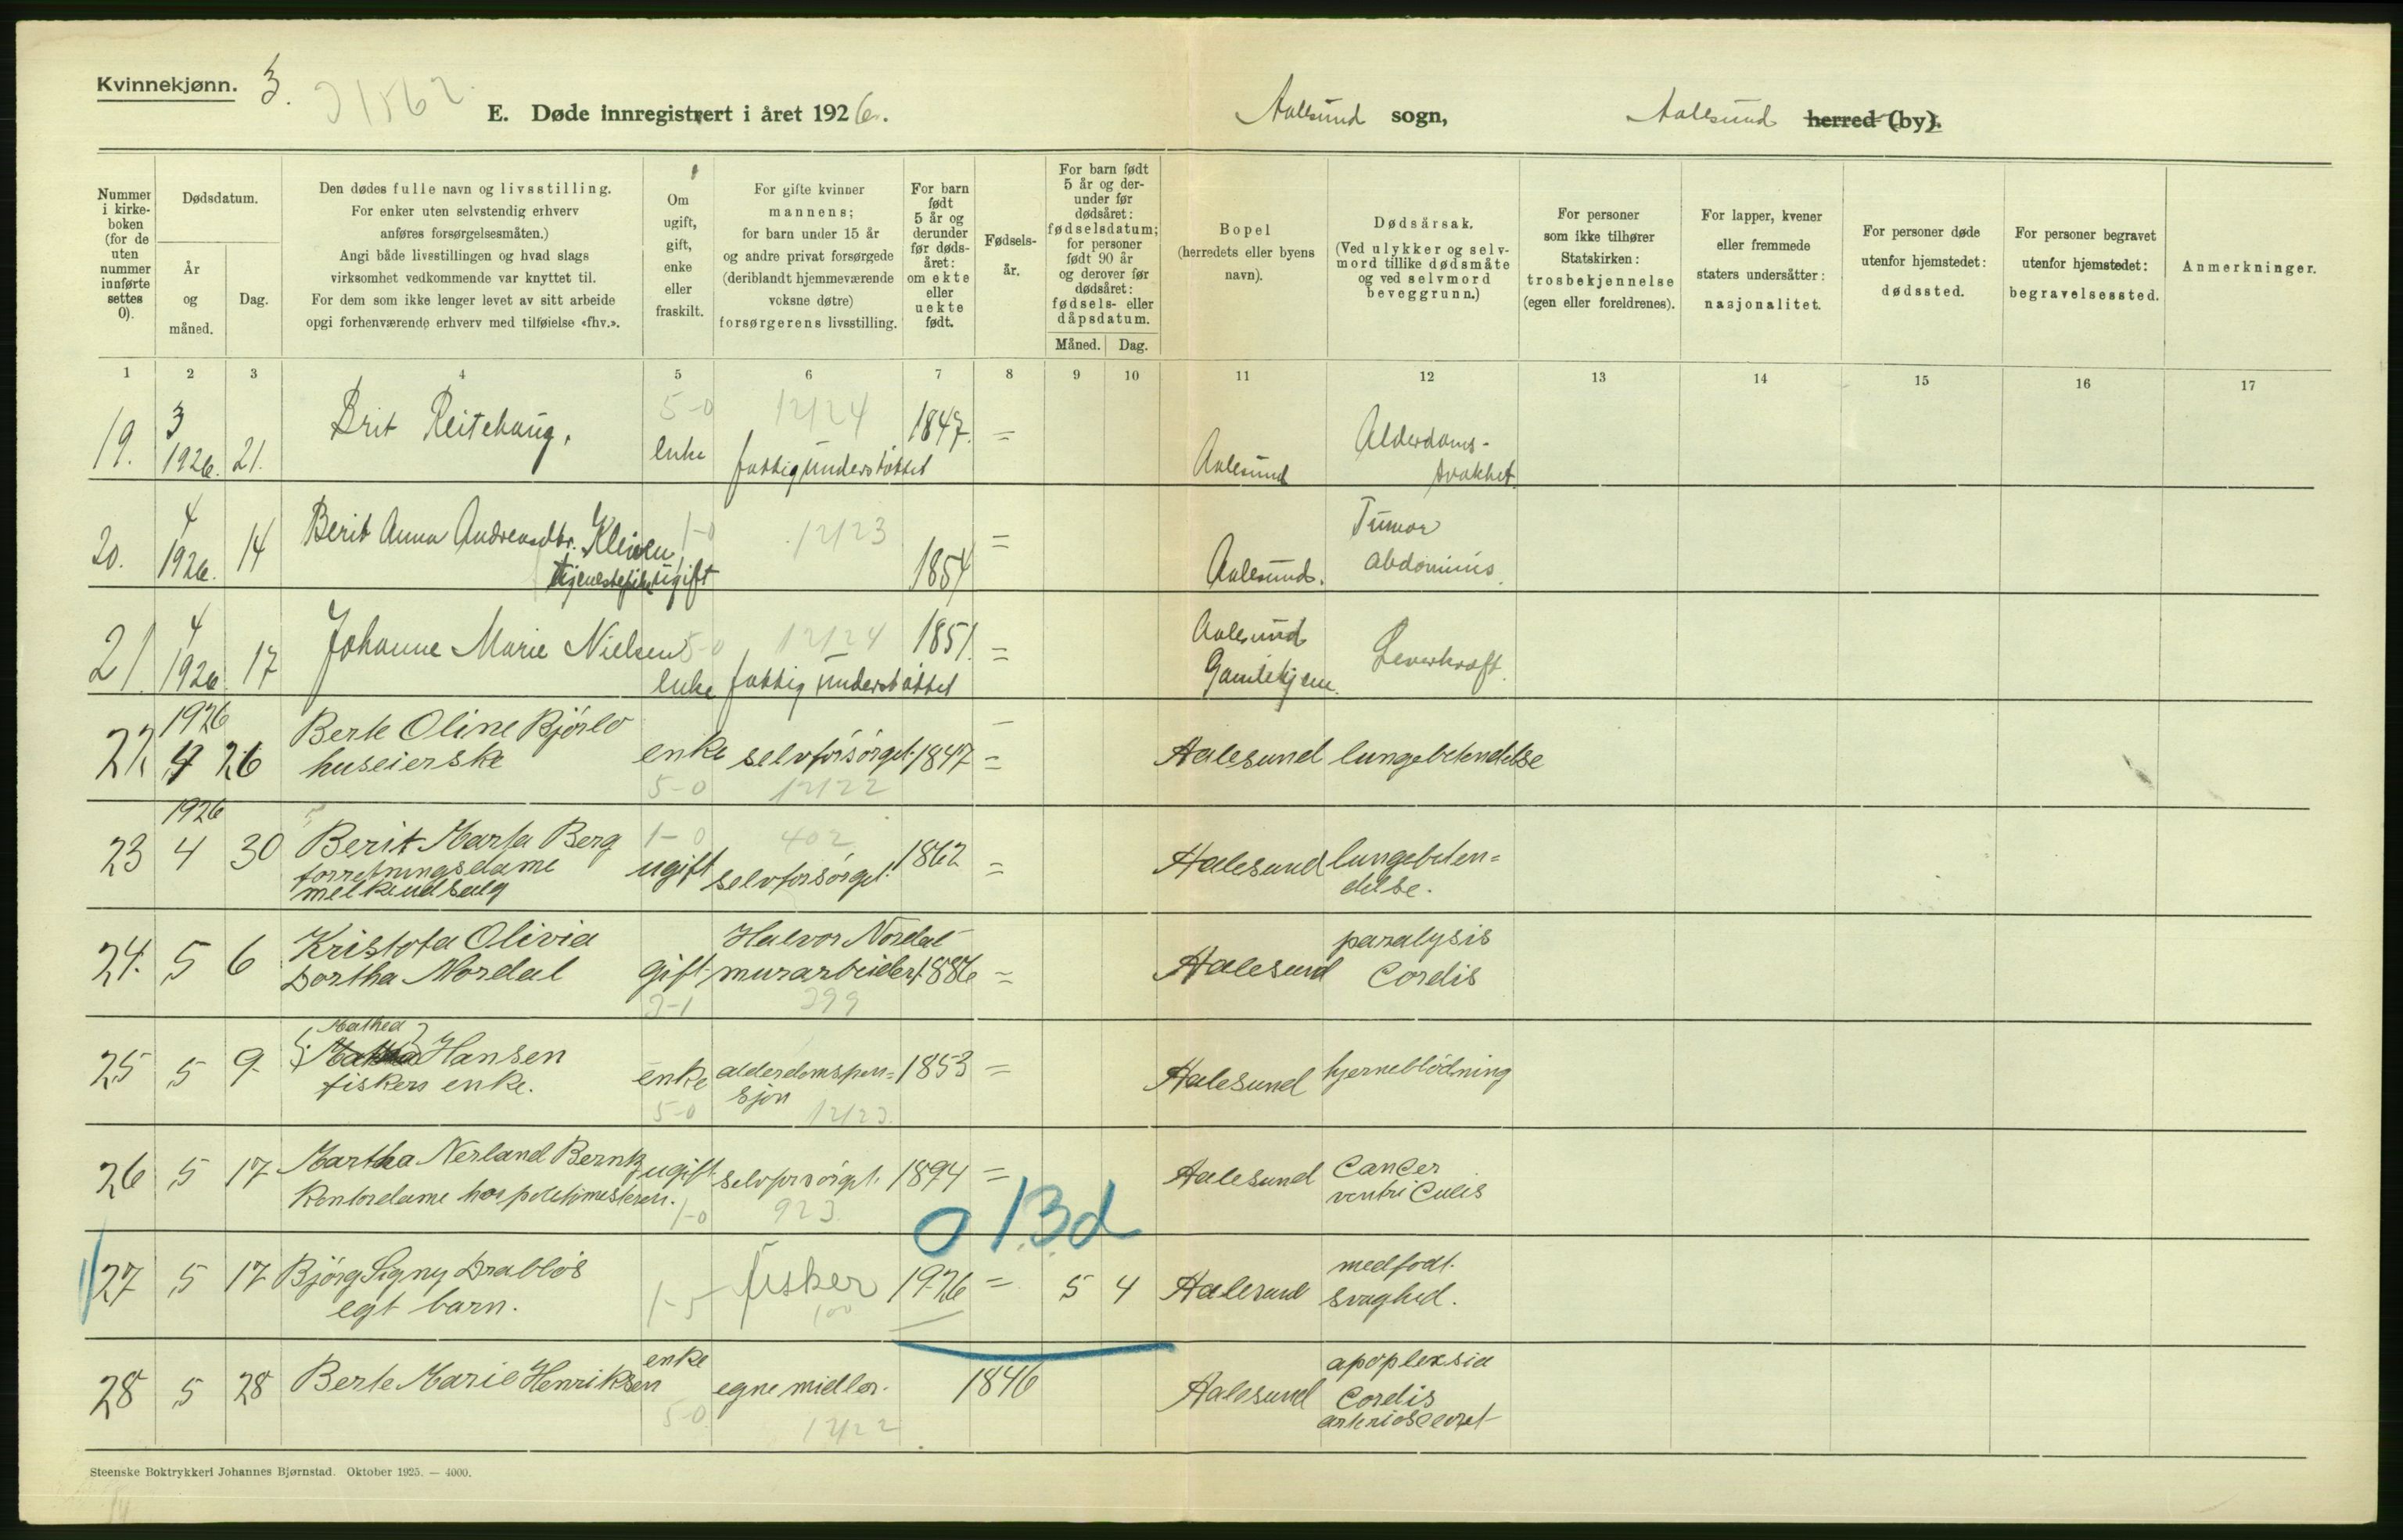 Kvinnekjønn. 3.
E. Døde innregistrert i året 1926. Aalesund sogn, Aalesund herred (by).
Nummer i kirke-boken (for de uten nummer innførte settes 0).
Dødsdatum.
År og måned.
Dag.
Den dødes fulle navn og livsstilling.
For enker uten selvstendig erhverv
anføres forsørgelsesmåten.)
Angi både livsstillingen og hvad slags
virksomhet vedkommende var knyttet til.
For dem som ikke lenger levet av sitt arbeide
opgi forhenværende erhverv med tilføielse «fhv.».
Om ugift, gift, enke eller fraskilt.
For gifte kvinner
mannens;
for barn under 15 år
og andre privat forsørgede
(deriblandt hjemmeværende
voksne døtre)
forsørgerens livsstilling.
For barn født 5 år og derunder før døds-året: om ekte eller uekte født.
Fødsels-år.
For barn født 5 år og der-under før dødsåret: fødselsdatum; for personer født 90 år og derover før dødsåret: fødsels- eller dåpsdatum.
Måned. Dag.
Bopel
(herredets eller byens
navn).
Dødsårsak.
(Ved ulykker og selv-
mord tillike dødsmåte
og ved selvmord
beveggrunn.)
For personer
som ikke tilhører
Statskirken:
trosbekjennelse
(egen eller foreldrenes).
For lapper, kvener
eller fremmede
staters undersåtter:
nasjonalitet.
For personer døde
utenfor hjemstedet:
dødssted.
For personer begravet
utenfor hjemstedet:
begravelsessted.
Anmerkninger.
1 2 3 4 5 6 7 8 9 10 11 12 13 14 15 16 17
19. 3 1926. 21. Brit Reitehaug. 5-0 enke 12/24 fattigunderstøttet 1847. = Aalesund Alderdoms-
svakhet.
20. 4 1926. 14 Berit Anna Andreasdtr. Kleiven 1-0 12/23 = Tumor
tjenestepike ugift 1854 Aalesund. abdominis.
21. 4 1926. 17 Johanne Marie Nielsen 5-0 12/24 1851. = Aalesund Leverkræft.
enke fattig understøttet Gamlehjem.
22. 1926 4 26 Berte Oline Bjørlo
huseierske enke selvforsørget. 1847 = Aalesund lungebetendelse
5-0 12/22
23 1926 4 30 Berit Marta Berg 1-0 402
forretningsdame ugift selvforsørget. 1862 = Aalesund lungebeten=
melkeudsalg delse.
24. 5 6 Kristofa Olivia Halvor Nordal paralysis
Dortha Nordal gift murarbeider. 1886 = Aalesund Cordis
3-1 299
25 5 9. Mathea Hansen
fiskers enke. enke alderdomspen=sjon 1853 = Aalesund hjerneblødning
5-0 12/23.
26 5 17 Martha Nerland Berntz ugift selvforsørget. 1894 = Aalesund Cancer
Kontordame hos politimesteren. 1-0 923. ventriculis
0 13d
27 5 17 Bjørg Signy Drabløs fisker 1926 = 5 4 Aalesund medfødt.
egt barn. 1-5 100 svaghed.
28 5 28 Berte Marie Henriksen enke egne midler. 1846 Aalesund apoplexsia
Cordis
5-0. 12/22
Steenske Boktrykkeri Johannes Bjørnstad. Oktober 1925. — 4000.